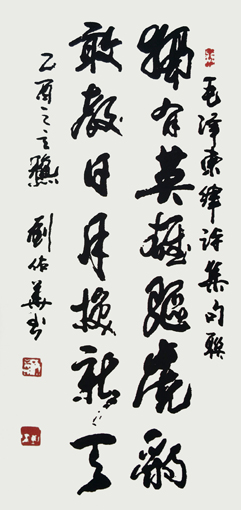 毛澤東律詩集句聯
獨有英雄驅虎豹
敢教日月換新天
乙酉之立龝 劉佑書